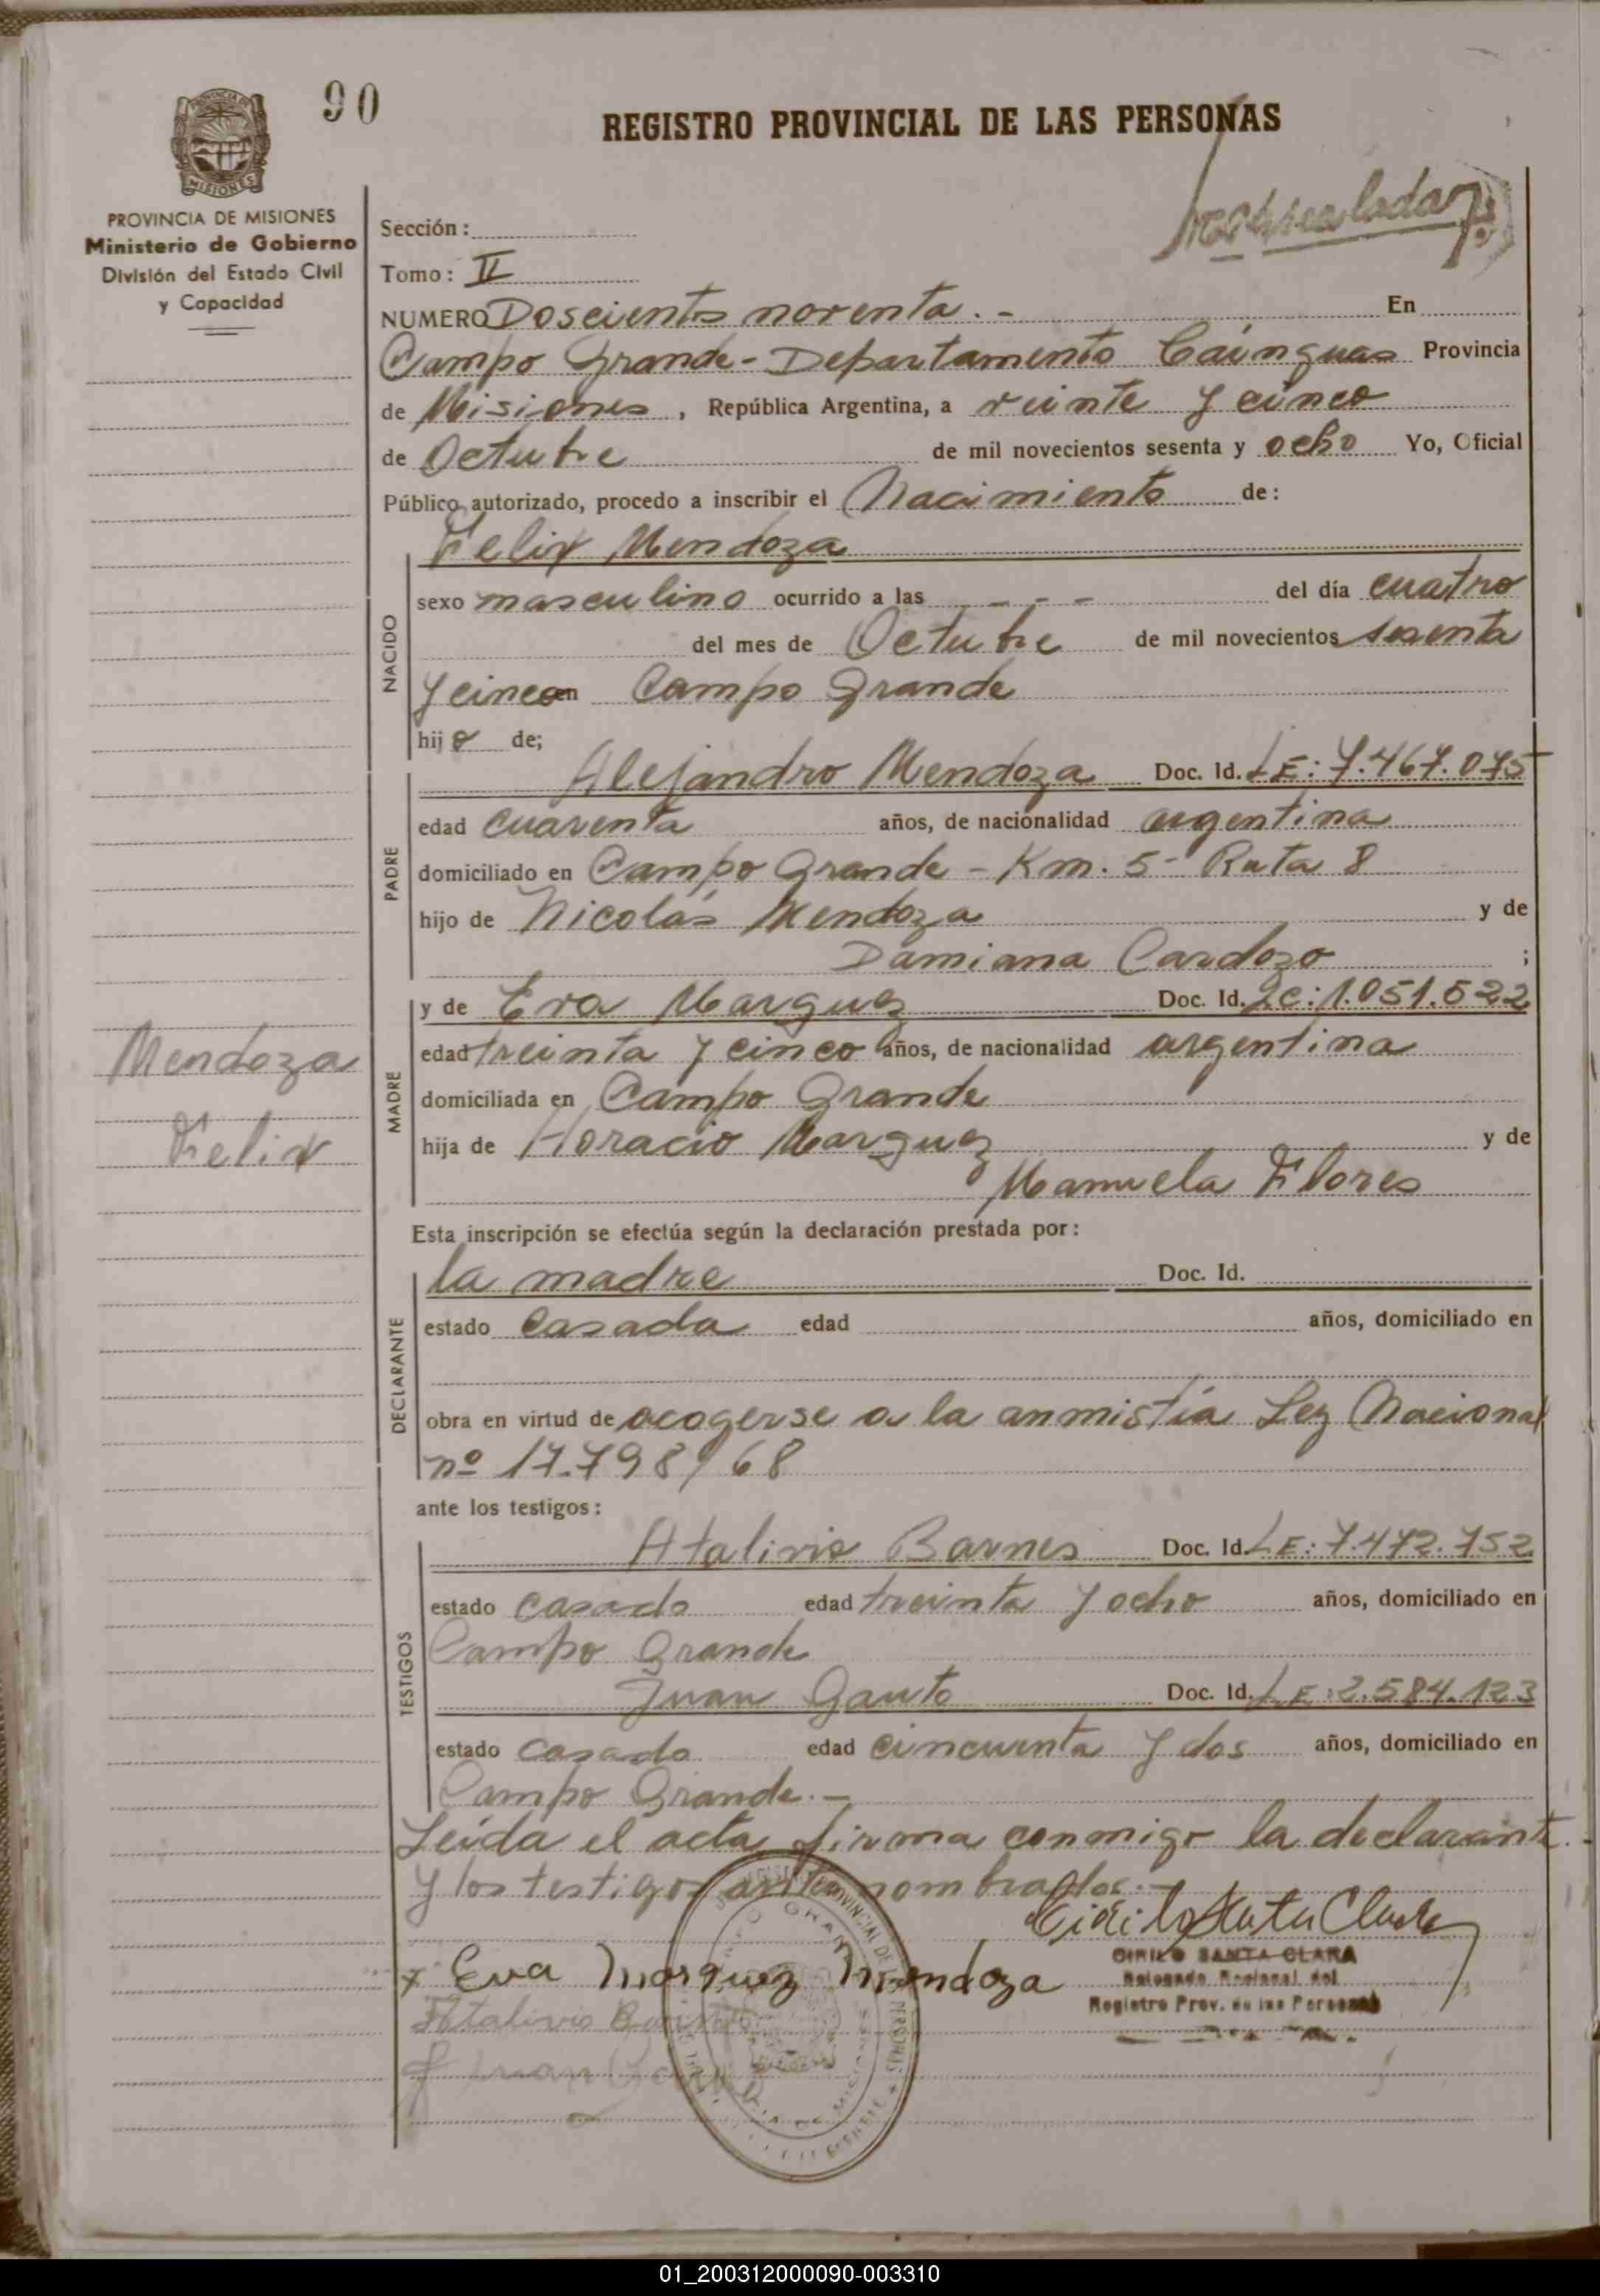 90
REGISTRO PROVINCIAL DE LAS PERSONAS
PROVINCIA DE MISIONES
MISIONES
PROVINCIA DE MISIONES
Ministerio de Gobierno
División del Estado Civil
y Capacidad
Sección:
Tomo: II
NUMERO Doscientos noventa.- En
Campo Grande - Departamento Cáinguas Provincia
de Misiones, República Argentina, a veinte y cinco
de Octubre de mil novecientos sesenta y ocho Yo, Oficial
Público autorizado, procedo a inscribir el Nacimiento de:
Felix Mendoza
NACIDO
sexo masculino ocurrido a las - - - del día cuatro
del mes de Octubre de mil novecientos sesenta
y cinco en Campo Grande
hijo de;
PADRE
Alejandro Mendoza Doc. Id. LE: 7.467.075
edad cuarenta años, de nacionalidad argentina
domiciliado en Campo Grande - Km. 5 - Ruta 8
hijo de Nicolás Mendoza y de
Damiana Cardozo ;
MADRE
y de Eva Marquez Doc. Id. Lc: 1.051.522
edad treinta y cinco años, de nacionalidad argentina
domiciliada en Campo Grande
hija de Horacio Marquez y de
Manuela Flores
Mendoza
Felix
Esta inscripción se efectúa según la declaración prestada por:
DECLARANTE
la madre Doc. Id.
estado casada edad años, domiciliado en
obra en virtud de acogerse a la anmistía Ley Nacional
nº 17.798/68
ante los testigos:
TESTIGOS
Atalivio Barnes Doc. Id. LE: 7.472.752
estado casado edad treinta y ocho años, domiciliado en
Campo Grande
Juan Gauto Doc. Id. LE: 2.584.123
estado casado edad cincuenta y dos años, domiciliado en
Campo Grande.-
Leída el acta firma conmigo la declarante.-
y los testigos antes nombrados.-
Cirilo Santa Clara
x Eva Marquez Mendoza
CIRILO SANTA CLARA
Delegado Regional del
Registro Prov. de las Personas
Atalivio
Juan
01_200312000090-003310